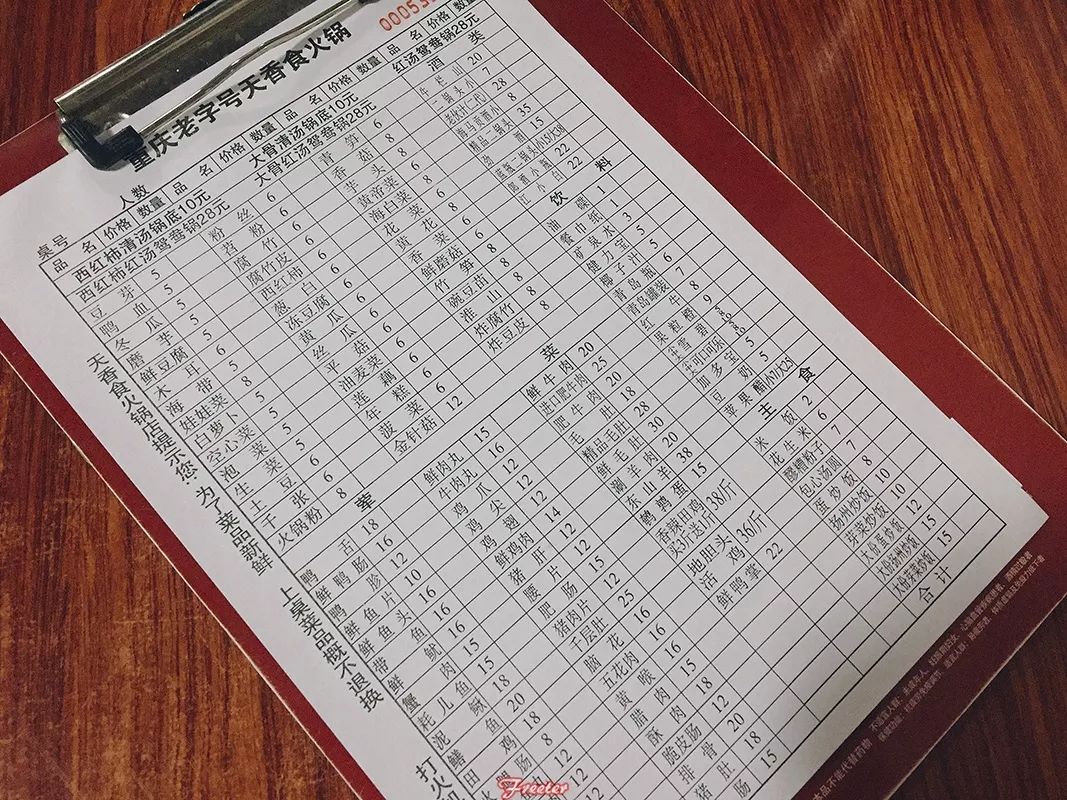 重庆老字号天香食火锅
桌号 人数
品名 价格 数量 品名 价格 数量 品名 价格 数量 品名 价格 数量
西红柿清汤锅底10元 大骨清汤锅底10元
西红柿红汤鸳鸯锅28元 大骨红汤鸳鸯锅28元 红汤鸳鸯锅28元
豆芽 5
鸭血 5
冬瓜 5
磨芋 5
鲜豆腐 5
木耳 6
海带 5
娃娃菜 8
白萝卜 5
空心菜 5
泡菜 5
生菜 5
土豆 6
千张 6
火锅粉 8
粉丝 6
苕粉 6
腐竹 6
腐竹皮 6
西红柿 6
葱白 6
冻豆腐 6
黄瓜 6
丝瓜 6
平菇 6
油麦菜 6
莲藕 6
年糕 6
菠菜 6
金针菇 12
青笋 6
香菇 8
芋头 6
黄帝菜 8
海白菜 6
花菜 8
黄花 6
香菜 6
鲜蘑菇 6
竹笋 8
豌豆苗 8
淮山 8
炸腐竹 8
炸豆皮 8
酒类
牛栏山 20
二锅头小 7
老伙计(二代) 28
海马贡酒小 8
精品二锅头 35
劲酒 15
江小白 22
饮料
油碟 1
餐巾纸 1
矿泉水 3
健力宝 5
椰子汁 5
青岛瓶 6
青岛罐装 7
红牛 8
果粒橙 9
加多宝 5
豆奶 5
主食
米饭 2
花生米 6
醪糟粉子 7
包心汤圆 7
蛋炒饭 8
扬州炒饭 10
蔬菜炒饭 10
大份蛋炒饭 12
大份扬州炒饭 15
大份蔬菜炒饭 15
合计
荤菜
鸭舌 18
鲜鸭肠 16
鸭胗 12
鲜鱼片 10
鲜鱼头 16
带鱼 16
鲜鱿 16
蟹肉 15
耗儿鱼 15
泥鳅 18
鳝鱼 20
田鸡 18
鲜肉丸 15
牛肉丸 16
鸡爪 12
鸡尖 12
鸡翅 12
鲜鸡肉 14
猪肝 12
腰片 12
肥肠 15
猪肉片 12
千层肚 25
脑花 16
五花肉 16
黄喉 15
腊肉 18
酥肉 12
脆皮肠 20
排骨 18
猪肚 15
鲜牛肉 20
进口肥牛肉 25
肥牛肉 20
毛肚 18
精品毛肚 28
鲜毛肚 30
涮羊肉 20
东山羊 38
鹌鹑蛋 15
香辣田鸡
买3斤送1斤 38/斤
地胆头
活鸡 36/斤
鲜鸭掌 22
天香食火锅店提示您:为了菜品新鲜 上桌菜品概不退换
Freeter